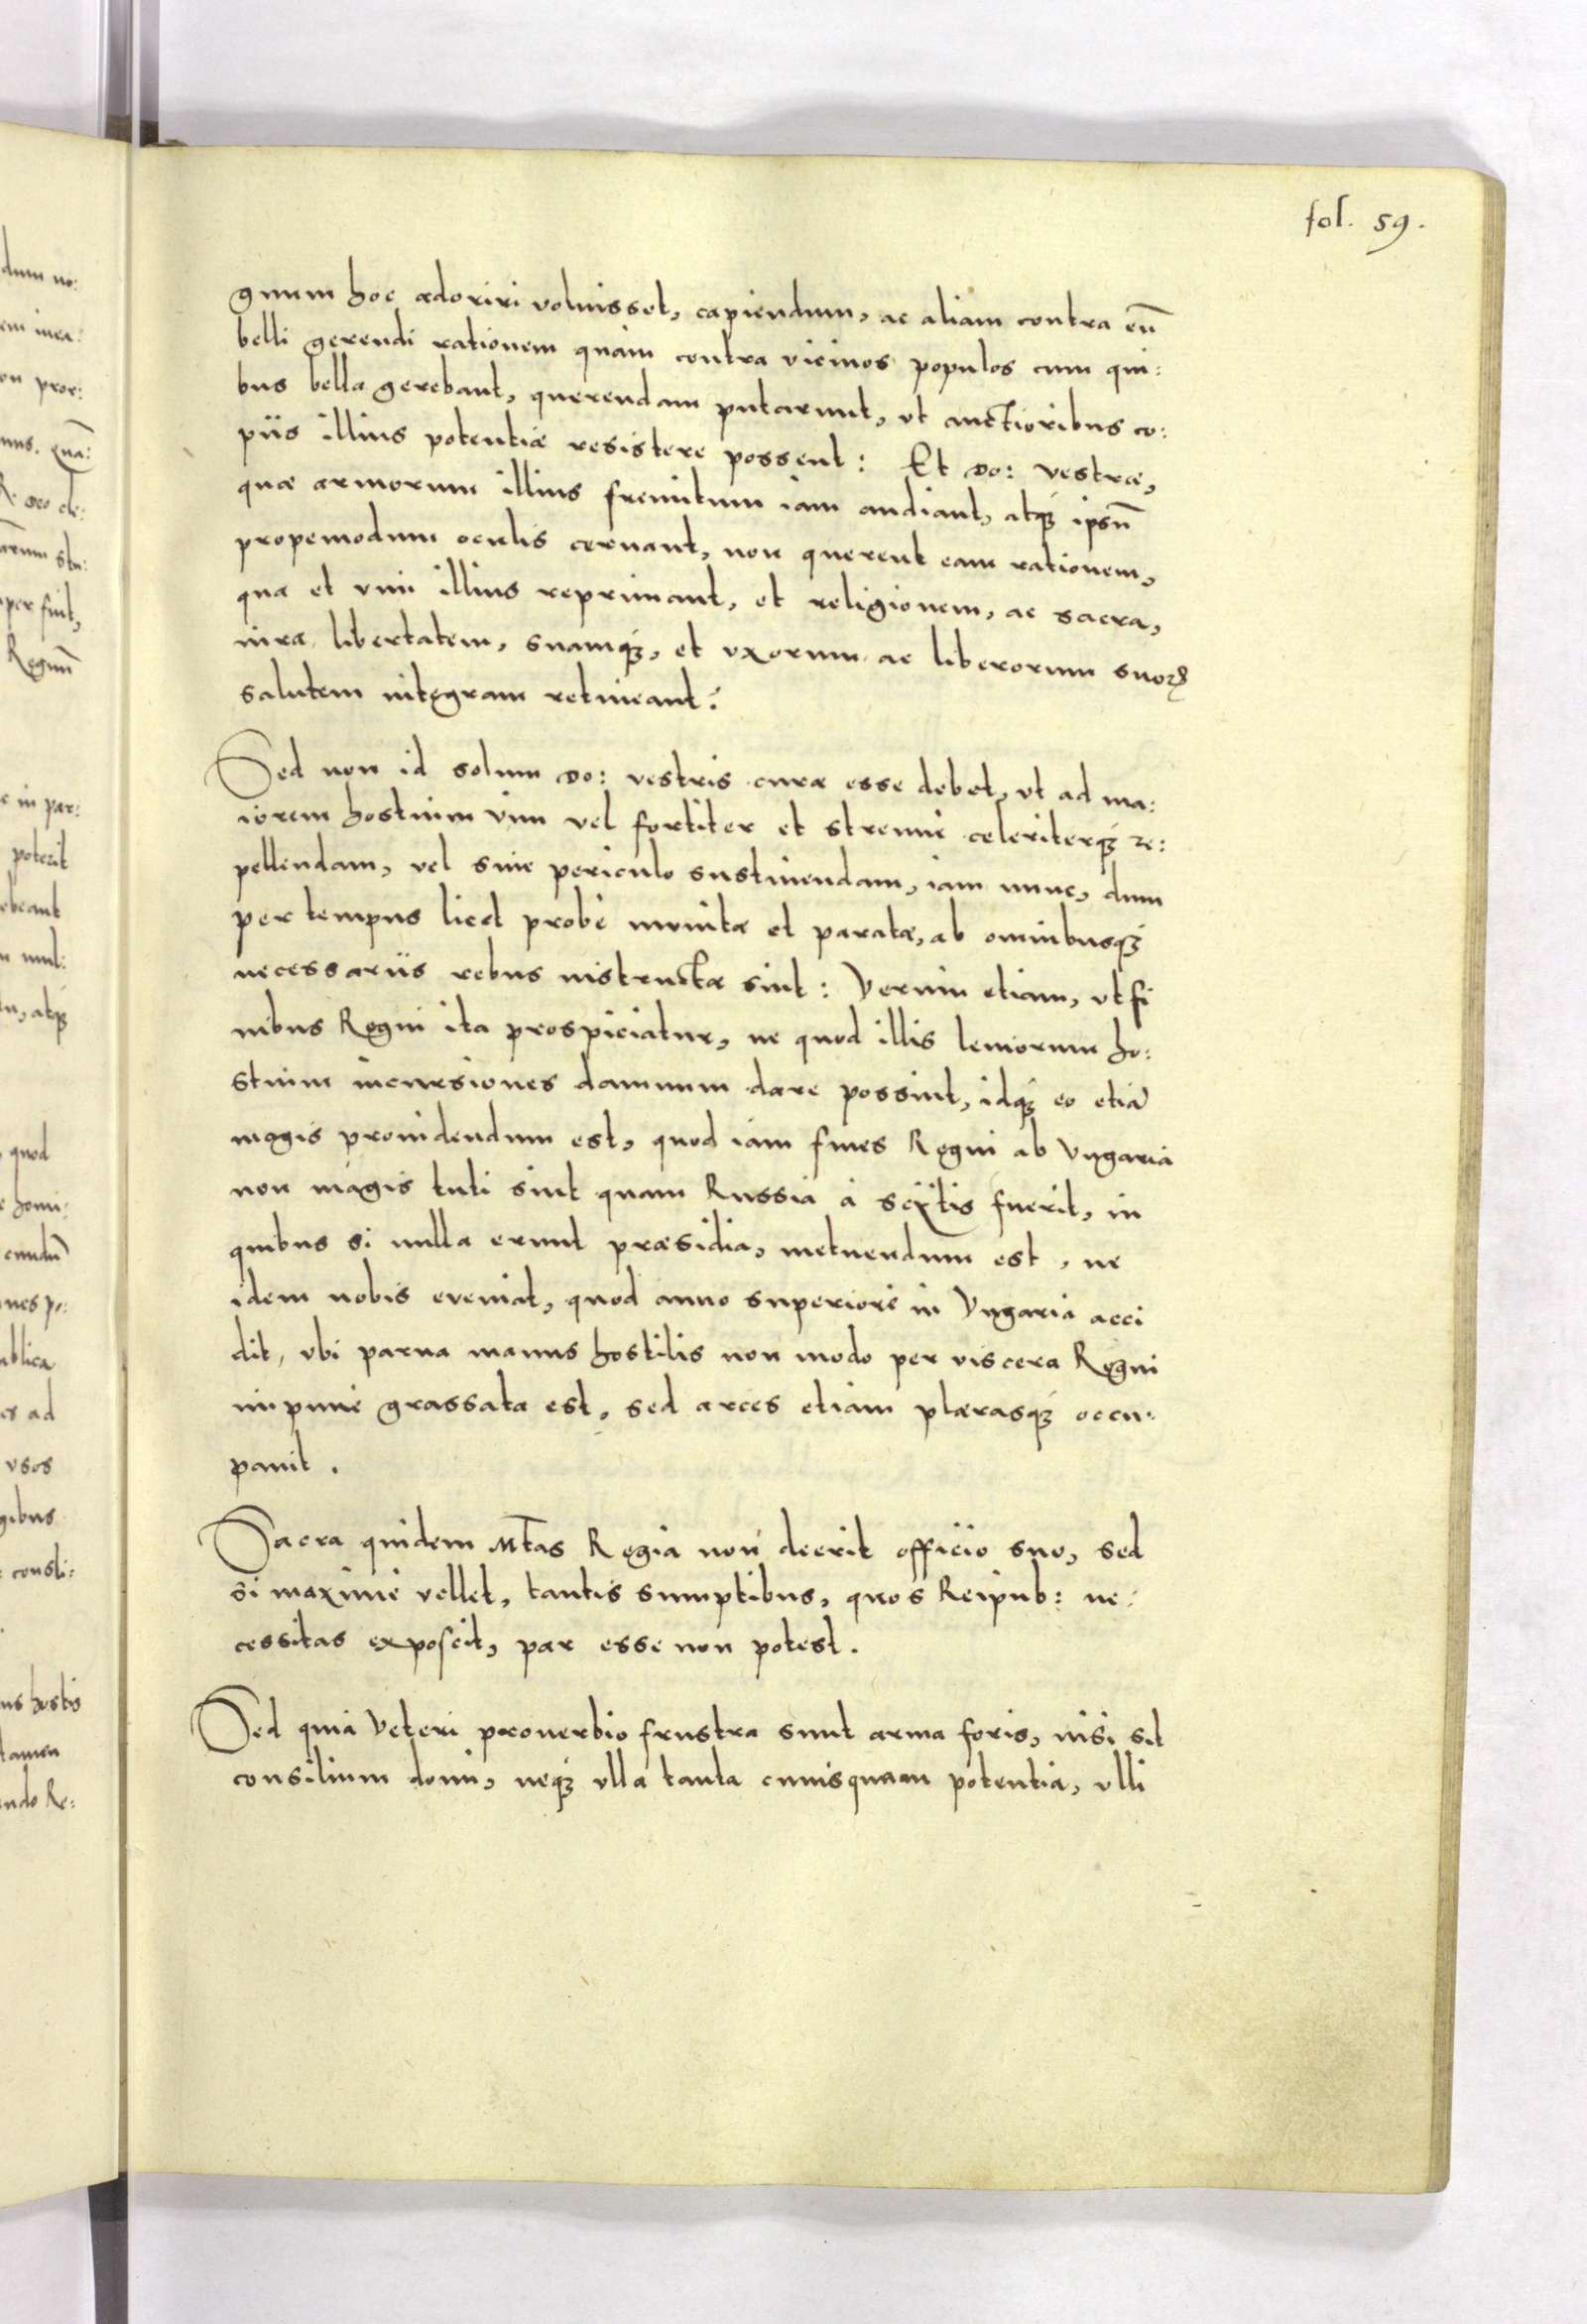 fol. 59.
gnum hoc adoriri voluisset, capiendum, ac aliam contra eū
belli gerendi rationem quàm contra vicinos populos cum qui:
bus bella gerebant, querendam putarunt, vt auctioribus co:
piis illius potentiæ resistere possent: Et Do: vestræ,
quæ armorum illius fremitum iam audiant, atq; ipsū
propemodum oculis cernant, non querent eam rationem,
qua et vim illius reprimant, et religionem, ac sacra,
iura libertatem, suamq;, et vxorum ac liberorum suoꝝ
salutem integram retineant?
Sed non id solum Do: vestris curæ esse debet, vt ad ma:
iorem hostium vim vel fortiter et strenuè celeriterq; re:
pellendam, vel sine periculo sustinendam, iam nunc, dum
per tempus licet probè munitæ et paratæ, ab omnibusq;
necessariis rebus instructæ sint: Verum etiam, vt fi
nibus Regni ita prospiciatur, ne quod illis leuiorum ho:
stium incursiones damnum dare possint, idq; eo etiā
magis prouidendum est, quod iam fines Regni ab Vngaria
non magis tuti sint quam Russia à scÿtis fuerit, in
quibus si nulla erunt præsidia, metuendum est, ne
idem nobis eveniat, quod anno superiore in Vngaria acci
dit, vbi parua manus hostilis non modo per viscera Regni
impunè grassata est, sed arces etiam plærasq; occu:
pauit.
Sacra quidem Mt̄as Regia non deerit officio suo, sed
si maximè vellet, tantis sumptibus, quos Reipub: ne:
cessitas exposcit, par esse non potest.
Sed quia Veteri prouerbio frustra sunt arma foris, nisi sit
consilium domi, neq; vlla tanta cuiusquam potentia, vlli